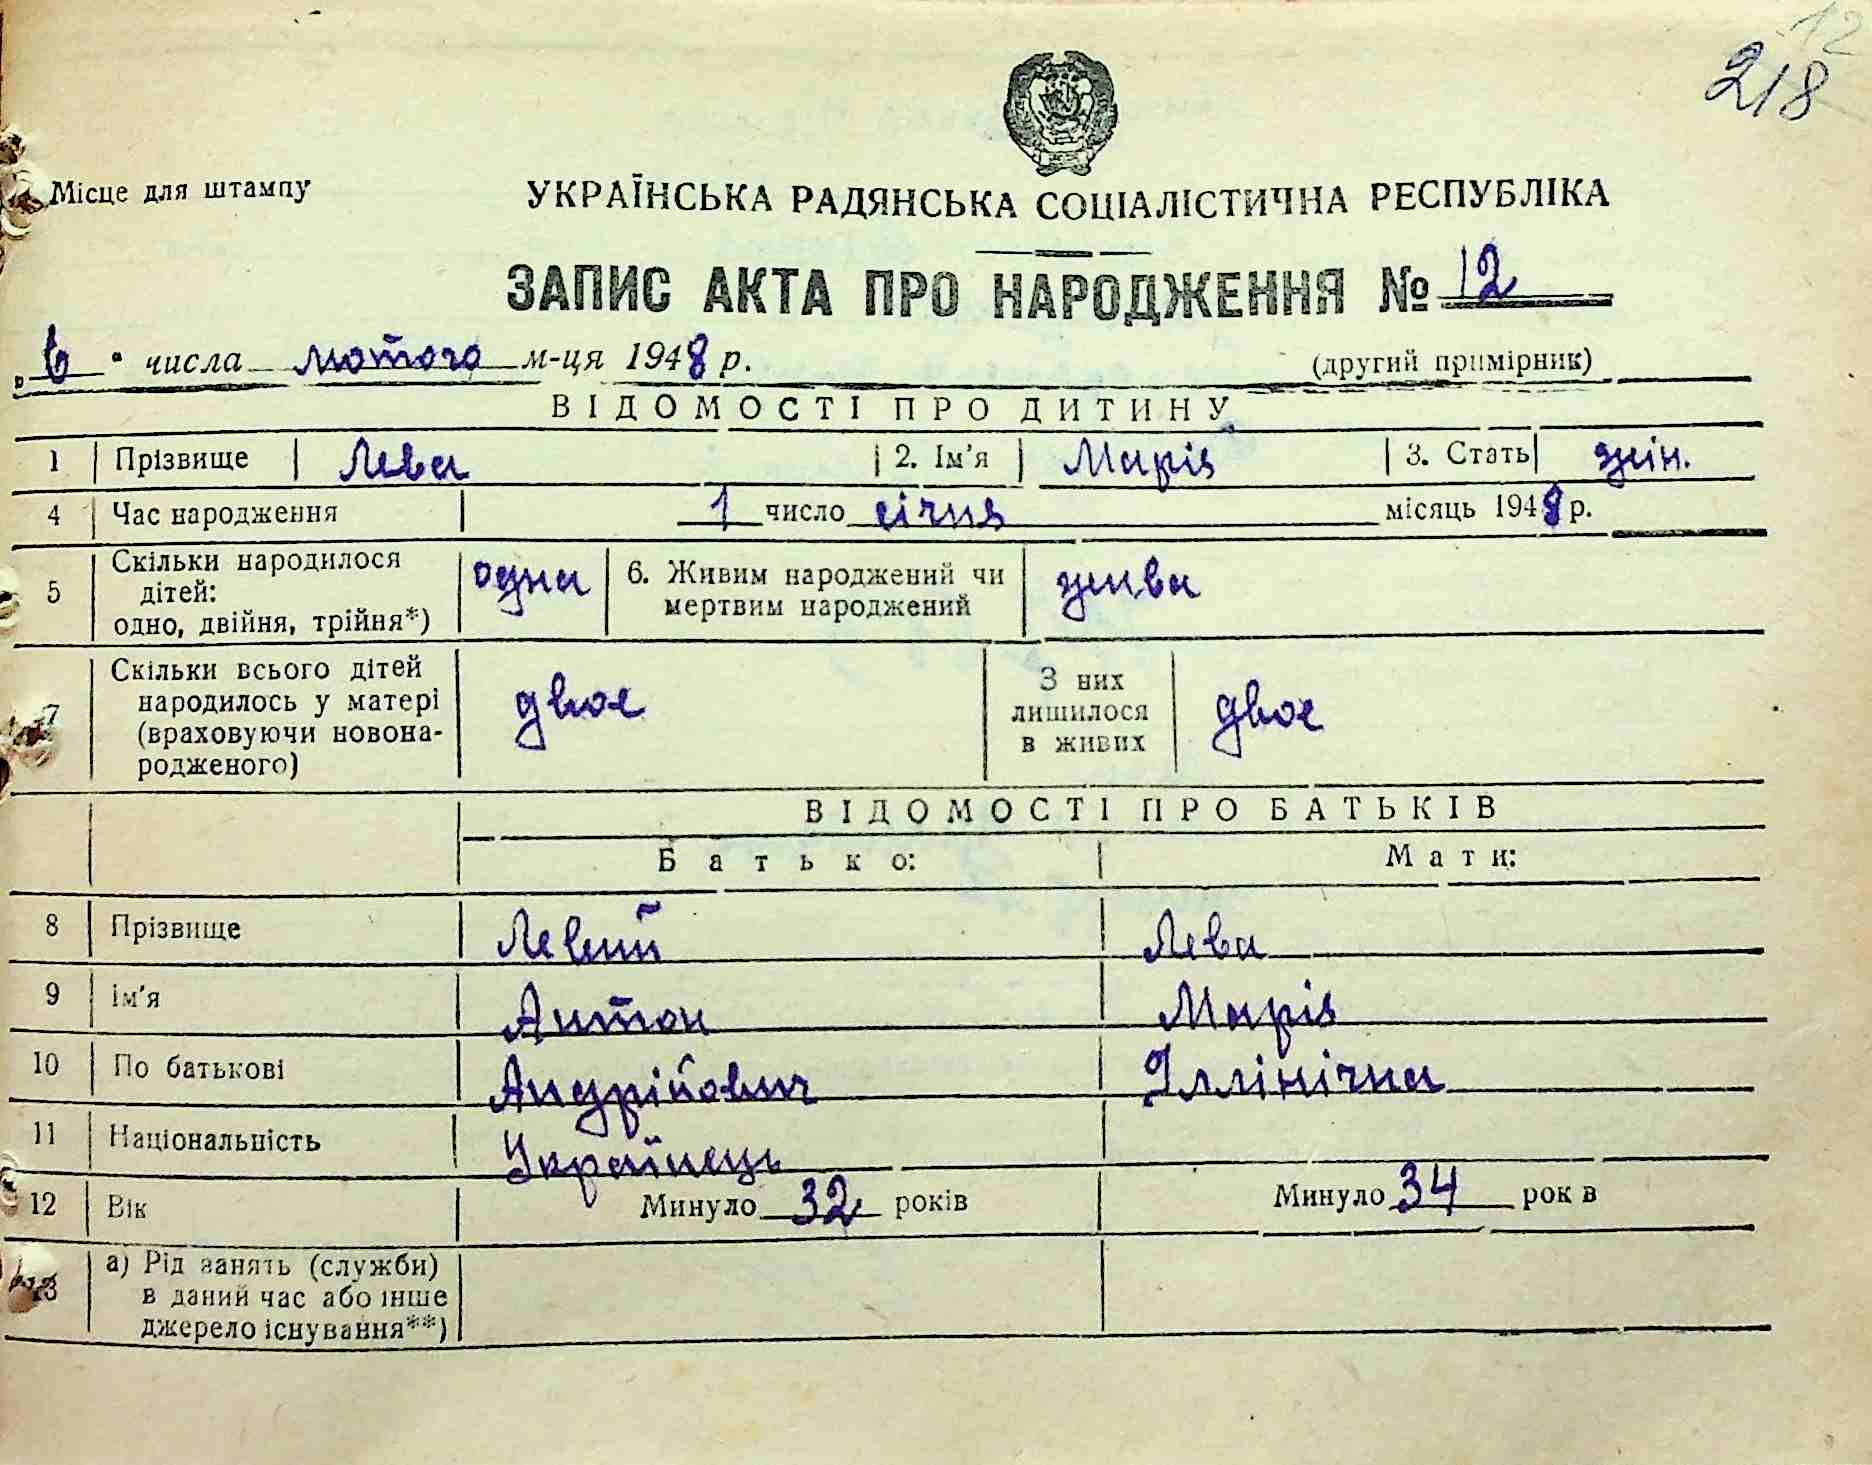 12
218
Місце для штампу
УКРАЇНСЬКА РАДЯНСЬКА СОЦІАЛІСТИЧНА РЕСПУБЛІКА
ЗАПИС АКТА ПРО НАРОДЖЕННЯ № 12
„6" числа лютого м-ця 1948 р. (другий примірник)
ВІДОМОСТІ ПРО ДИТИНУ
1 Прізвище Лева 2. Ім'я Марія 3. Стать жін.
4 Час народження 1 число січня місяць 1948 р.
5 Скільки народилося дітей: одно, двійня, трійня*) одна 6. Живим народжений чи мертвим народжений жива
7 Скільки всього дітей народилось у матері (враховуючи новона-родженого) двоє З них лишилося в живих двоє
ВІДОМОСТІ ПРО БАТЬКІВ
Батько: Мати:
8 Прізвище Левий Лева
9 Ім'я Антон Марія
10 По батькові Андрійович Іллінічна
11 Національність Українець
12 Вік Минуло 32 років Минуло 34 рок в
13 а) Рід занять (служби) в даний час або інше джерело існування**)